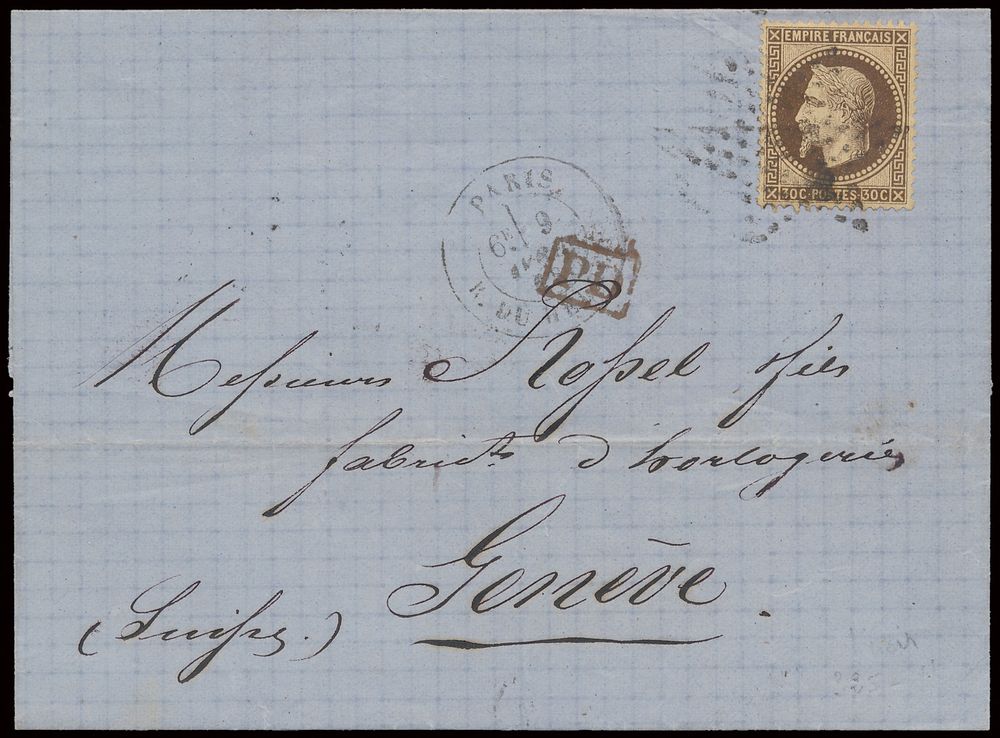 EMPIRE FRANÇAIS
30C·POSTES·30C
PARIS
6E 9
R. DU
PD
Messieurs Rossel fils
fabricts d'horlogerie
Genève.
(Suisse.)